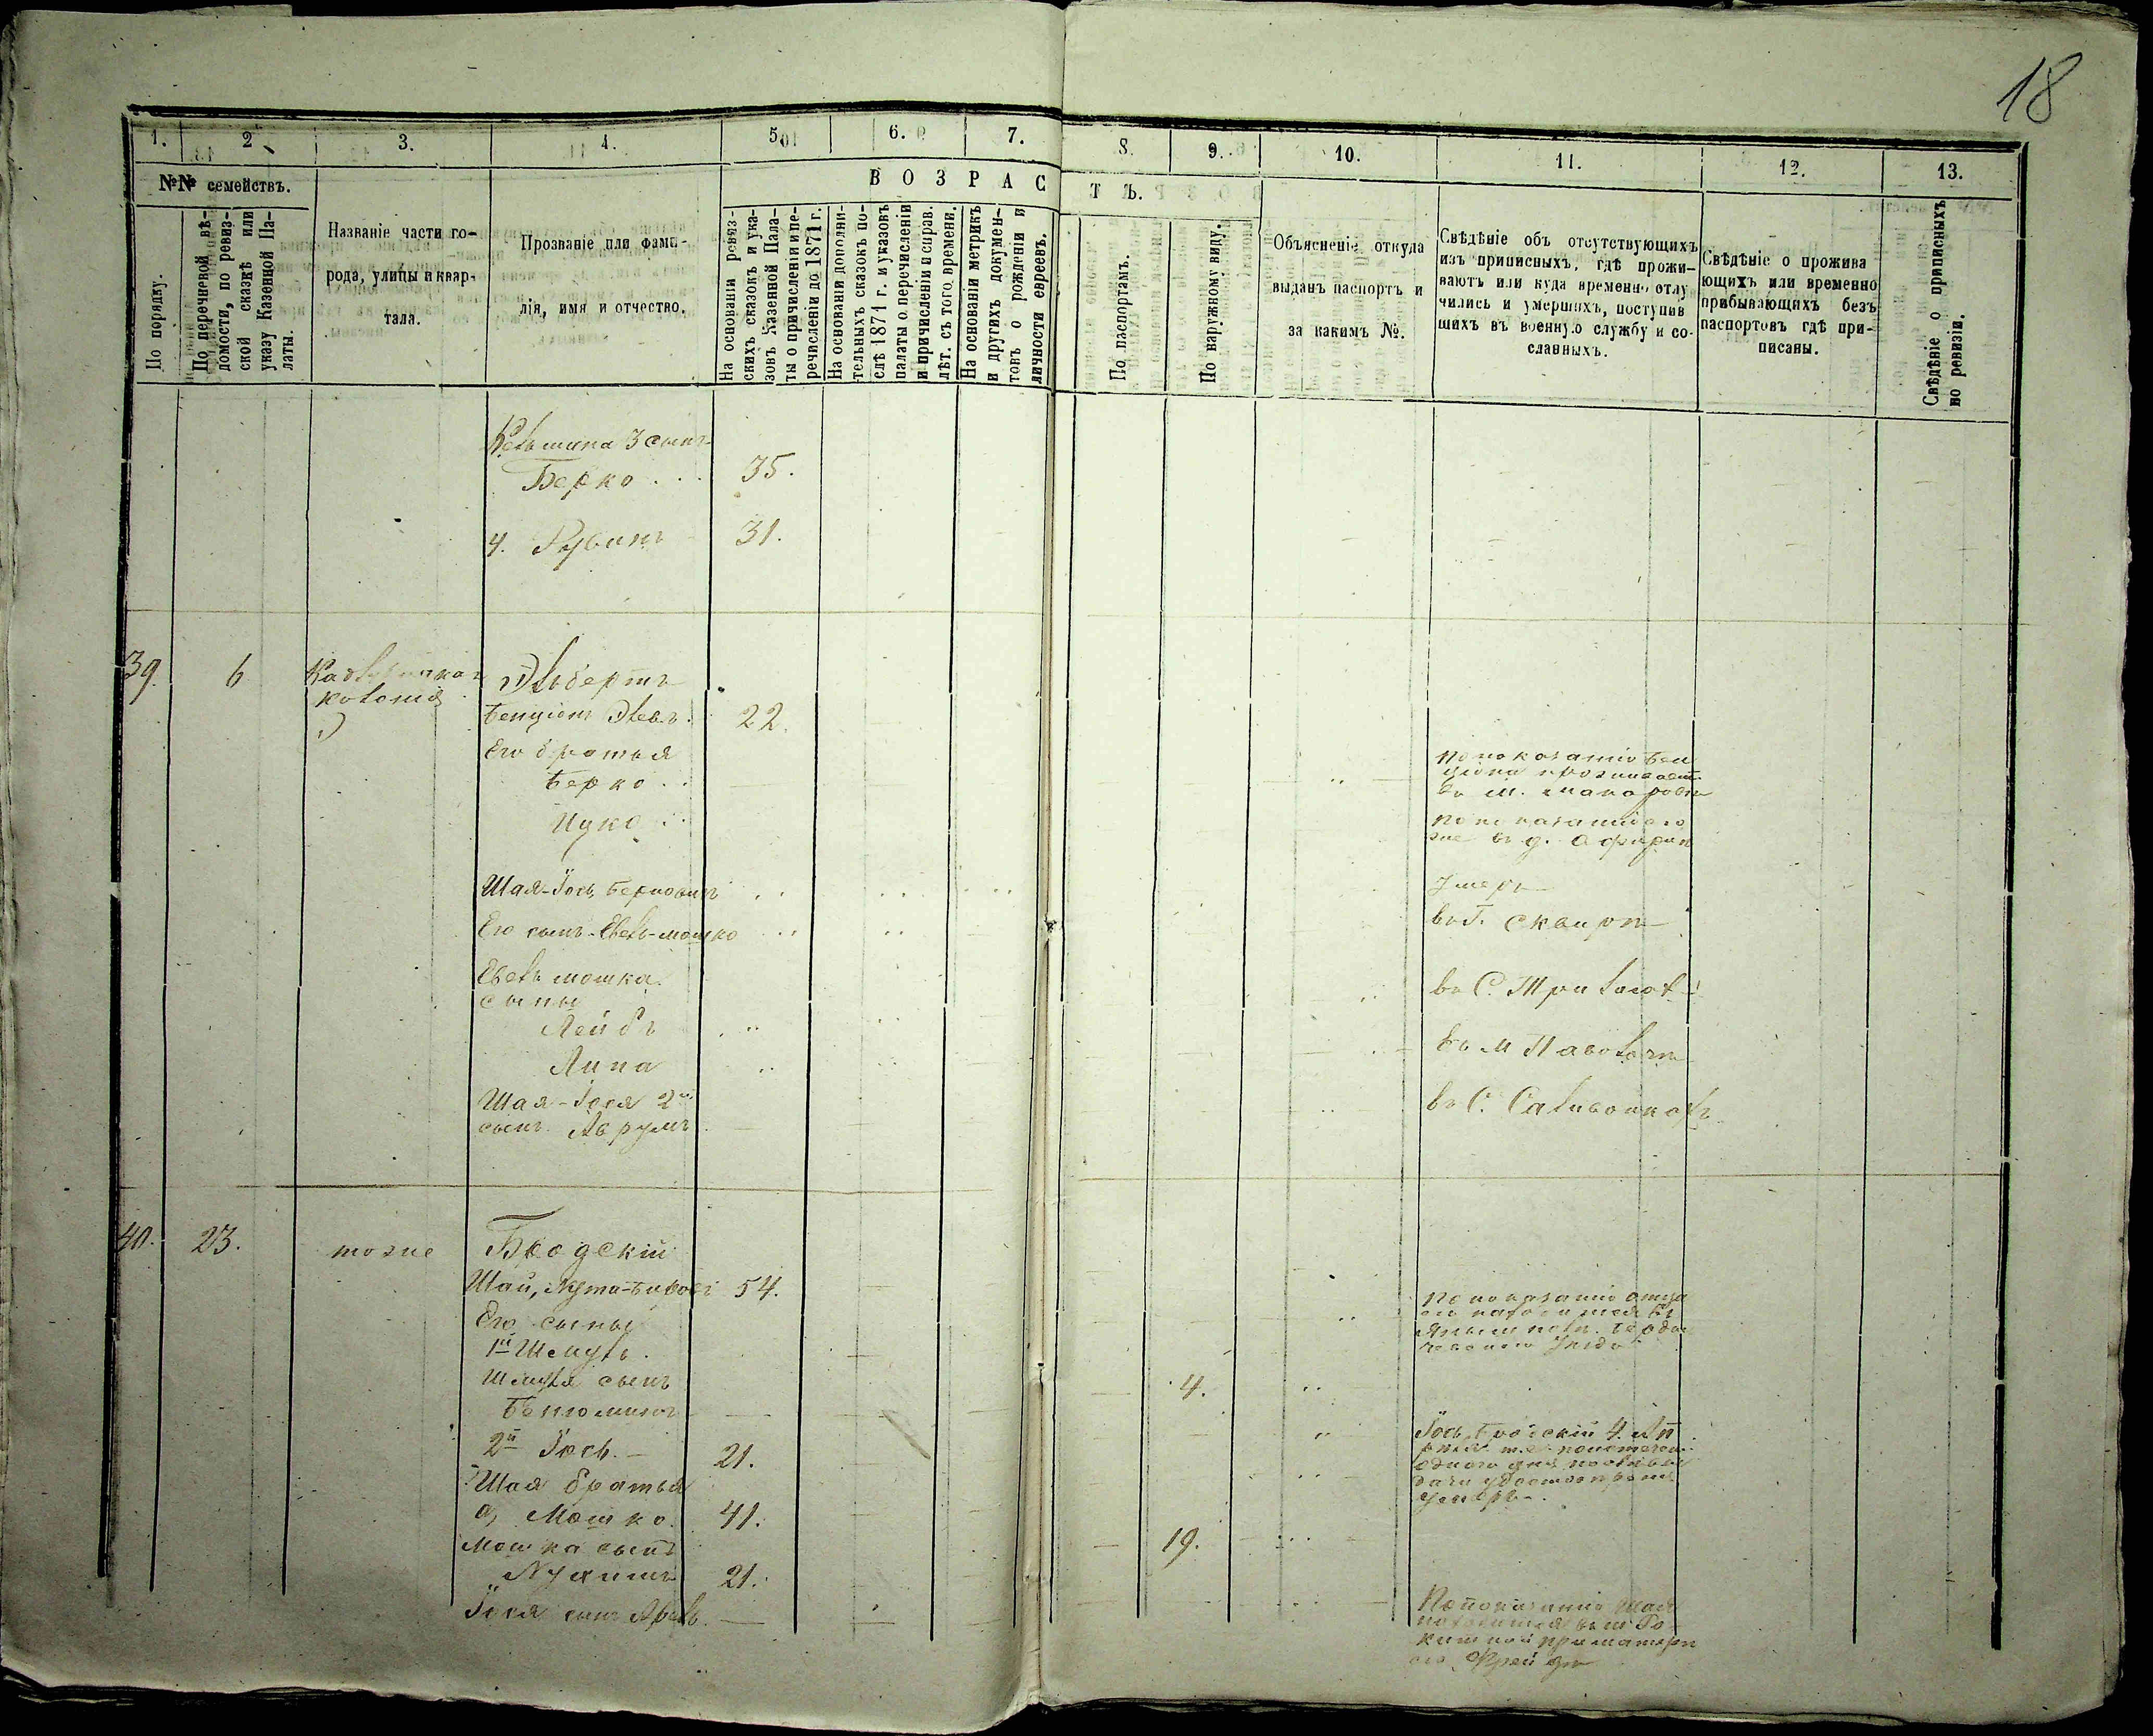 18
1. 2 3. 4. 5. 6. 7. 8. 9. 10. 11. 12. 13.
№№ семействъ.
ВОЗРАСТЪ.
По порядку.
По перечневой вѣ-
домости, по ревиз-
ской сказкѣ или
указу Казенной Па-
латы.
Названіе части го-
рода, улицы и квар-
тала.
Прозваніе или фами-
лія, имя и отчество.
На основаніи ревиз-
скихъ сказокъ и ука-
зовъ Казенной Пала-
ты о причисленіи и пе-
речисленіи до 1871 г.
На основаніи дополни-
тельныхъ сказокъ по-
слѣ 1871 г. и указовъ
палаты о перечисленіи
и причисленіи и справ.
лѣт. съ того времени.
На основаніи метрикъ
и другихъ докумен-
товъ о рожденіи и
личности евреевъ.
По паспортамъ.
По наружному виду.
Объясненіе откуда
выданъ паспортъ и
за какимъ №.
Свѣдѣніе объ отсутствующихъ
изъ приписныхъ, гдѣ прожи-
ваютъ или куда временно отлу
чились и умершихъ, поступив
шихъ въ военную службу и со-
сланныхъ.
Свѣдѣніе о прожива
ющихъ или временно
прибывающихъ безъ
паспортовъ гдѣ при-
писаны.
Свѣдѣніе о приписныхъ
по ревизіи.
3 сынъ
Берко 35.
4. Рувинъ 31.
39. 6 колонія
Бенціонъ 22.
Его братья
Берко
по показанію Бен
ціона проживаетъ
въ м. Макаровѣ
Ицко
по показанію его
же въ д.
Шая-Іось Берковичъ
Умеръ
Его сынъ Евель-Мошко
въ г. Сквирѣ
Евель Мошка
сыны
Лейбъ
въ С.
Липа
въ м Паволочѣ
Шая-Іося 2й
сынъ Аврумъ
въ С. Саливонкахъ
40. 23. тоже Бродскій
Шая, 54.
Его сыны
1й Шмуль
По показанію отца
его находится въ
Шмуля сынъ
4.
2й Іось 21.
Іось Бродскій 4. Ап
умеръ
Шая братья
а, Мошко 41.
Мошка сынъ
19.
Нухимъ 21.
Іося сынъ
По показанію Шая
находится въ м Ро
китной при матери
его